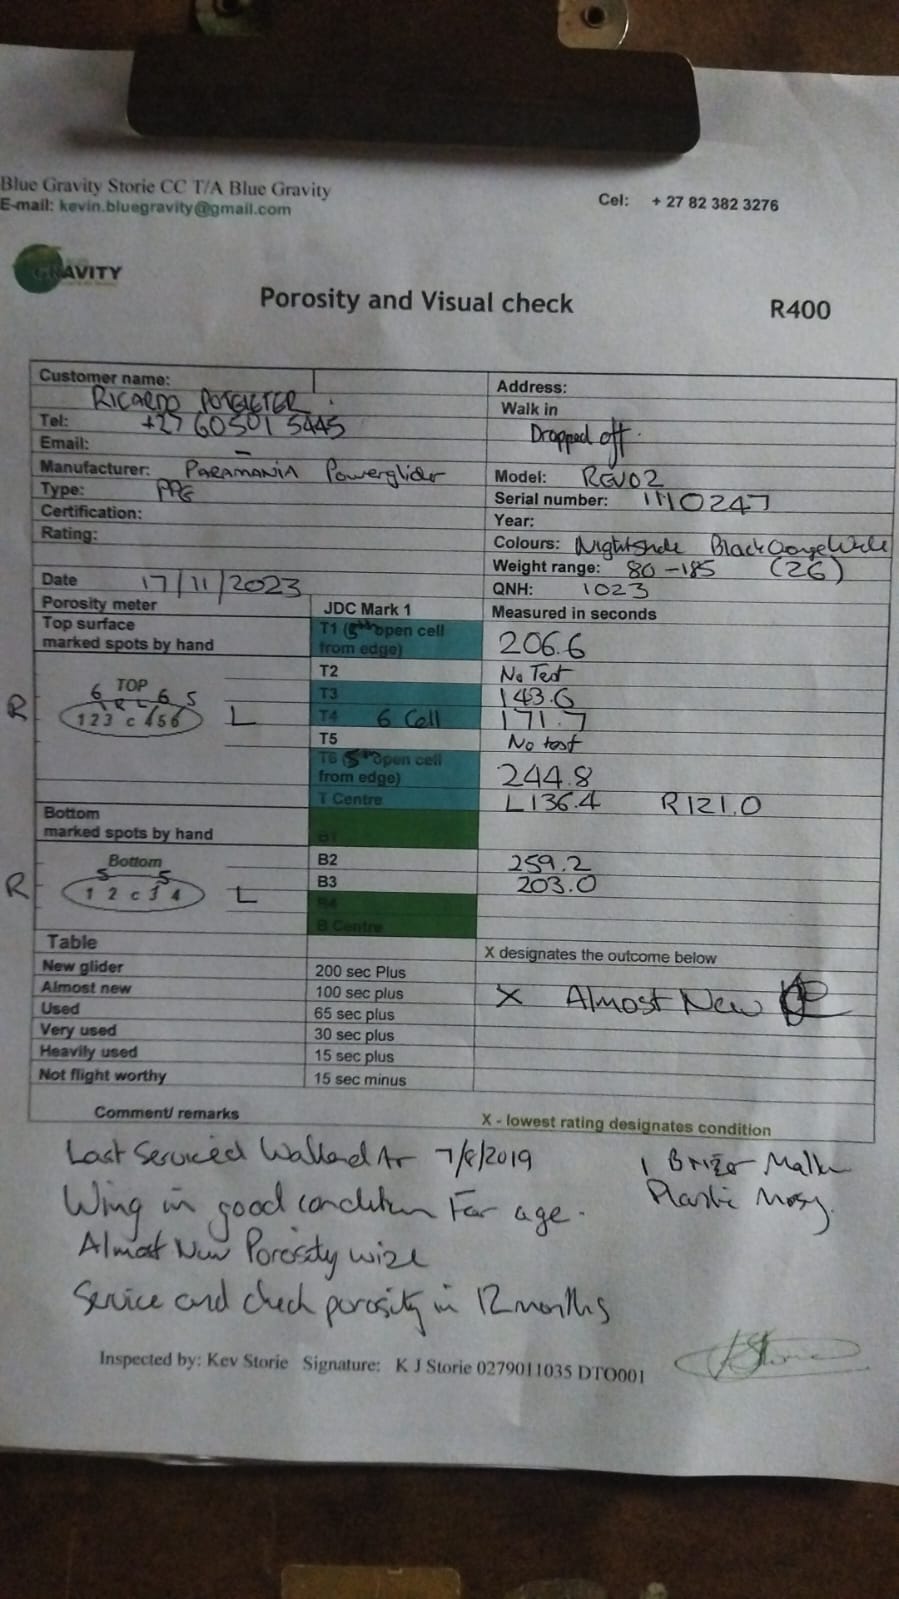 Blue Gravity Storie CC T/A Blue Gravity
E-mail: kevin.bluegravity@gmail.com
Cel: + 27 82 382 3276
GRAVITY
Porosity and Visual check
R400
Customer name:
RICARDO POTGIETER
Address:
Tel: +27 60501 5445
Walk in
Dropped off.
Email: –
Manufacturer: PARAMANIA Powerglider
Model: REVO2
Type: PPG
Serial number: 1110247
Certification:
Year:
Rating:
Colours: Nightshade Black Orange White
Weight range: 80 -185 (26)
Date 17/11/2023
QNH: 1023
Porosity meter
JDC Mark 1
Measured in seconds
Top surface
marked spots by hand
T1 (5th open cell
from edge)
206.6
T2
No Test
T3
143.6
R
6 TOP 6 5
R L
1 2 3 c 4 5 6
L
T4 6 Cell
171.7
T5
No test
T6 (5th open cell
from edge)
244.8
T Centre
L136.4 R121.0
Bottom
marked spots by hand
B1
R
Bottom
5 5
1 2 c 3 4
L
B2
259.2
B3
203.0
B4
B Centre
Table
X designates the outcome below
New glider
200 sec Plus
Almost new
100 sec plus
X Almost New
Used
65 sec plus
Very used
30 sec plus
Heavily used
15 sec plus
Not flight worthy
15 sec minus
Comment/ remarks
X - lowest rating designates condition
Last Serviced 7/8/2019
1
Plastic
Wing in good condition For age.
Almost New Porosity wize
Service and check porosity in 12 months
Inspected by: Kev Storie Signature: K J Storie 0279011035 DTO001